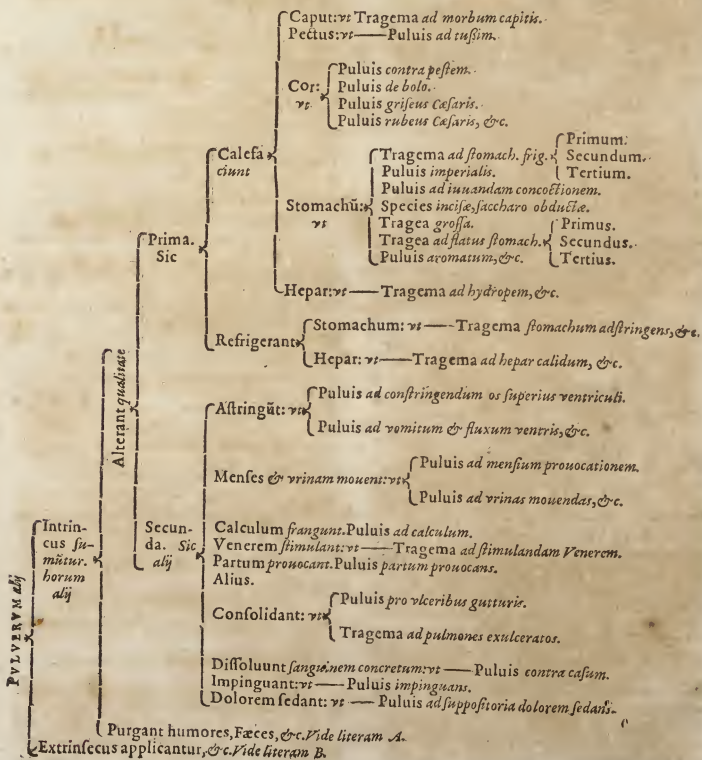 Caput: vt Tragema ad morbum capitis.
Pectus: vt — Puluis ad tußim.
Cor: vt
Puluis contra pestem.
Puluis de bolo.
Puluis griseus Cæsaris.
Puluis rubeus Cæsaris, &c.
Calefaciunt
Stomachũ: vt
Tragema ad stomach. frig.
Primum.
Secundum.
Tertium.
Puluis imperialis.
Puluis ad iuuandam concoctionem.
Species incisæ, saccharo obductæ.
Tragea grossa.
Tragea ad flatus stomach.
Primus.
Secundus.
Tertius.
Puluis aromatum, &c.
Prima. Sic
Hepar: vt — Tragema ad hydropem, &c.
Refrigerant
Stomachum: vt — Tragema stomachum adstringens, &c.
Hepar: vt — Tragema ad hepar calidum, &c.
Alterant qualitate
Astringũt: vt
Puluis ad constringendum os superius ventriculi.
Puluis ad vomitum & fluxum ventris, &c.
Menses & vrinam mouent: vt
Puluis ad mensium prouocationem.
Puluis ad vrinas mouendas, &c.
PVLVERVM alij
Intrincus sumũtur. horum alij
Secunda. Sic alij
Calculum frangunt. Puluis ad calculum.
Venerem stimulant: vt — Tragema ad stimulandam Venerem.
Partum prouocant. Puluis partum prouocans.
Alius.
Consolidant: vt
Puluis pro vlceribus gutturis.
Tragema ad pulmones exulceratos.
Dissoluunt sanguinem concretum: vt — Puluis contra casum.
Impinguant: vt — Puluis impinguans.
Dolorem sedant: vt — Puluis ad suppositoria dolorem sedans.
Purgant humores, Fæces, &c. Vide literam A.
Extrinsecus applicantur, &c. Vide literam B.